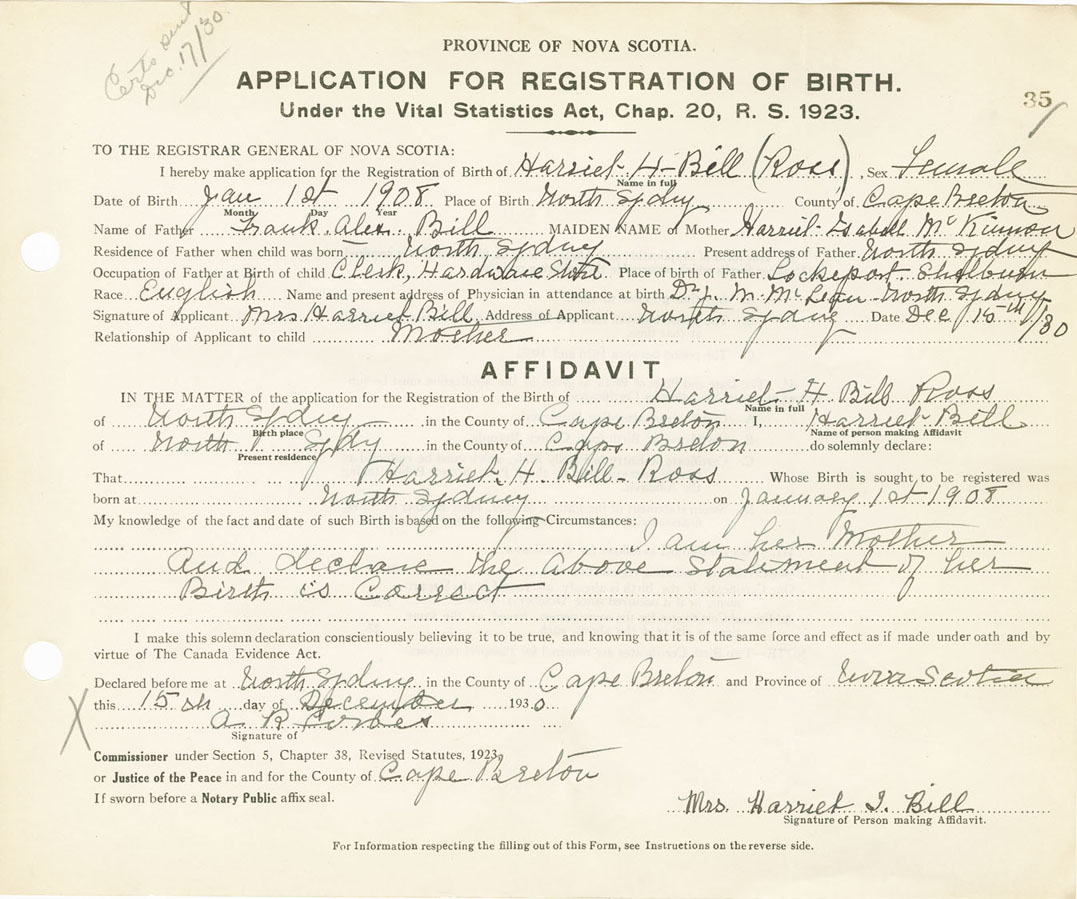 Certs sent
Dec. 17/30
PROVINCE OF NOVA SCOTIA.
APPLICATION FOR REGISTRATION OF BIRTH.
Under the Vital Statistics Act, Chap. 20, R. S. 1923.
35
TO THE REGISTRAR GENERAL OF NOVA SCOTIA:
I hereby make application for the Registration of Birth of Harriet H Bill (Ross), Sex Female
Name in full
Date of Birth Jan 1st 1908 Place of Birth North Sydney County of Cape Breton
Month Day Year
Name of Father Frank Alex. Bill MAIDEN NAME of Mother Harriet Isabell McKinnon
Residence of Father when child was born North Sydney Present address of Father North Sydney
Occupation of Father at Birth of child Clerk, Hardware Store Place of birth of Father Lockeport Shelburn
Race English Name and present address of Physician in attendance at birth Dr J. M. McLean North Sydney
Signature of Applicant Mrs Harriet Bill Address of Applicant North Sydney Date Dec 15th/30
Relationship of Applicant to child Mother
AFFIDAVIT
IN THE MATTER of the application for the Registration of the Birth of Harriet H Bill Ross
Name in full
of North Sydney in the County of Cape Breton I, Harriet Bill
Birth place Name of person making Affidavit
of North Sydy in the County of Cape Breton do solemnly declare:
Present residence
That Harriet H Bill-Ross Whose Birth is sought to be registered was
born at North Sydney on January 1st 1908
My knowledge of the fact and date of such Birth is based on the following Circumstances:
I am her Mother
And declare the above Statement of her
Birth is Correct
I make this solemn declaration conscientiously believing it to be true, and knowing that it is of the same force and effect as if made under oath and by
virtue of The Canada Evidence Act.
Declared before me at North Sydney in the County of Cape Breton and Province of Nova Scotia
this 15th day of December 1930
A R Forbes
Signature of
Commissioner under Section 5, Chapter 38, Revised Statutes, 1923,
or Justice of the Peace in and for the County of Cape Breton
If sworn before a Notary Public affix seal.
Mrs. Harriet I. Bill
Signature of Person making Affidavit.
For Information respecting the filling out of this Form, see Instructions on the reverse side.